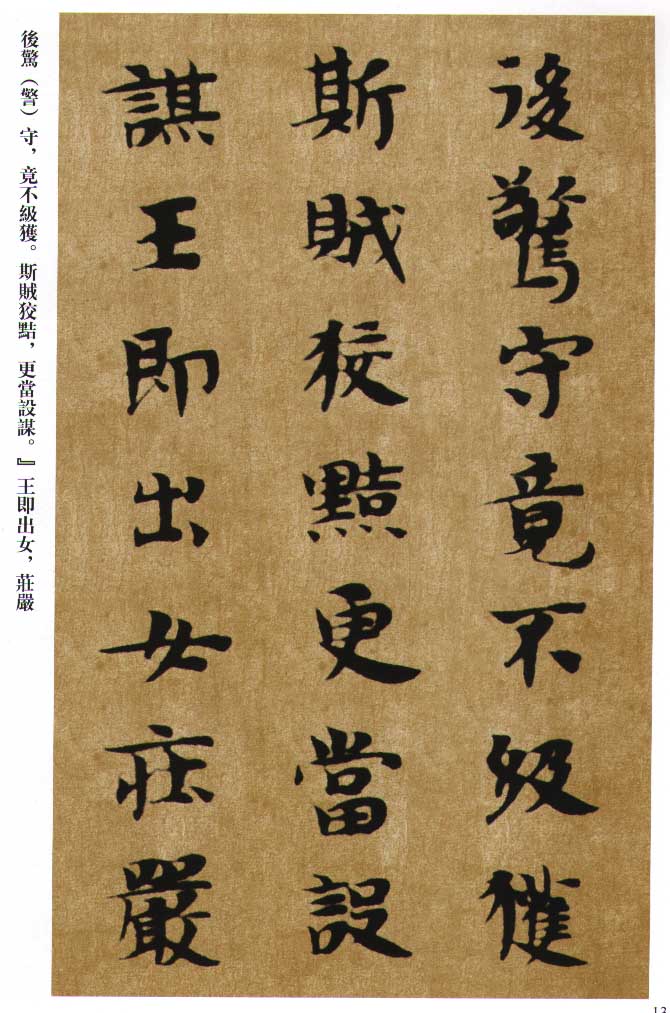 後驚守竟不級獲
斯賊狡黠更當設
謀王即出女莊嚴
後驚（警）守，竟不級獲。斯賊狡黠，更當設謀。』王即出女，莊嚴